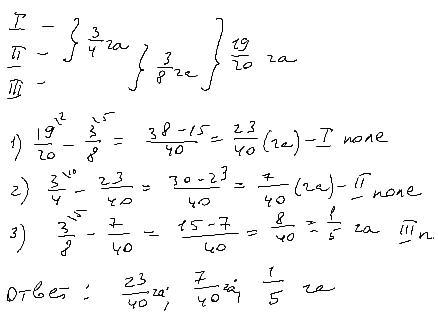 I –
II – } 3/4 га } 3/8 га } 19/20 га
III –
1) 19/20 \2 – 3/8 \5 = 38–15/40 = 23/40 (га) – I поле
2) 3/4 \10 – 23/40 = 30–23/40 = 7/40 (га) – II поле
3) 3/8 \5 – 7/40 = 15–7/40 = 8/40 = 1/5 га III п.
Ответ: 23/40 га; 7/40 га; 1/5 га